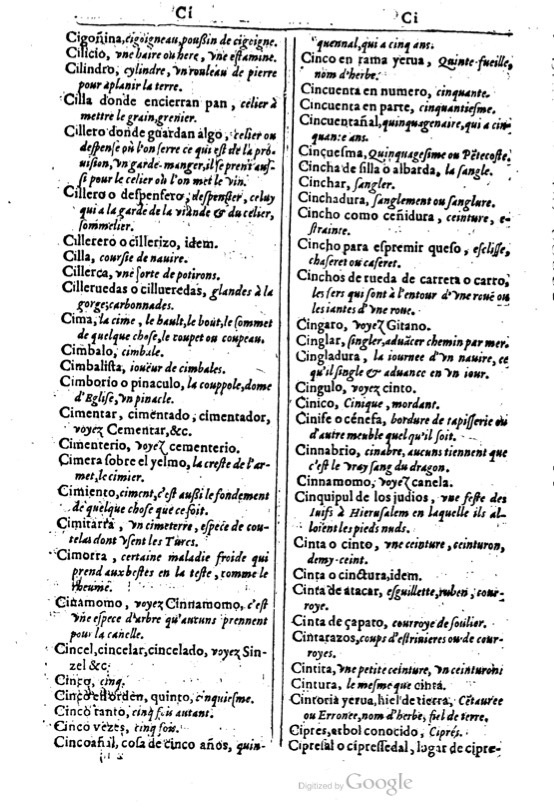 Ci
Cigoñina, cigoigneau, poußin de cigoigne.
Cilicio, vne haire ou here, vne estamine.
Cilindro, cylindre, vn rouleau de pierre
pour aplanir la terre.
Cilla donde encierran pan, celier à
mettre le grain, grenier.
Cillero donde guardan algo, celier ou
despense où l'on serre ce qui est de la pro-
uision, vn garde-manger, il se prent auſ-
ſi pour le celier où l'on met le vin.
Cillero o despenſero, despenſier, celuy
qui a la garde de la viande & du celier,
ſommelier.
Cillerero o cillerizo, idem.
Cilla, courſie de nauire.
Cillerca, vne ſorte de potirons.
Cilleruedas o cillueredas, glandes à la
gorge; carbonnades.
Cima, la cime, le hault, le bout, le ſommet
de quelque choſe, le coupet ou coupeau.
Cimbalo, cimbale.
Cimbaliſta, ioüeur de cimbales.
Cimborio o pinaculo, la couppole, dome
d'Egliſe, vn pinacle.
Cimentar, cimentado, cimentador,
voyez Cementar, &c.
Cimenterio, voyez cementerio.
Cimera ſobre el yelmo, la creſte de l'ar-
met, le cimier.
Cimiento, ciment, c'eſt außi le fondement
de quelque choſe que ce ſoit.
Cimitarra, vn cimeterre, eſpece de cou-
telas dont vſent les Turcs.
Cimorra, certaine maladie froide qui
prend aux beſtes en la teſte, comme le
rheume.
Cinamomo, voyez Cinnamomo, c'eſt
vne eſpece d'arbre qu'aucuns prennent
pour la canelle.
Cincel, cincelar, cincelado, voyez Sin-
zel &c.
Cinco, cinq.
Cinco eſt orden, quinto, cinquieſme.
Cinco tanto, cinq fois autant.
Cinco vezes, cinq fois.
Cincoañal, coſa de cinco años, quin-
Ci
quennal, qui a cinq ans.
Cinco en rama yerua, Quinte-fueille,
nom d'herbe.
Cincuenta en numero, cinquante.
Cincuenta en parte, cinquantieſme.
Cincuentañal, quinquagenaire, qui a cin-
quante ans.
Cinçueſma, Quinquageſime ou Pẽtecoſte.
Cincha de ſilla o albarda, la ſangle.
Cinchar, ſangler.
Cinchadura, ſanglement ou ſanglure.
Cincho como ceñidura, ceinture, e-
ſtrainte.
Cincho para eſpremir queſo, eſcliſſe,
chaſeret ou caſeret.
Cinchos de rueda de carreta o carro,
les fers qui ſont à l'entour d'vne roue ou
les iantes d'vne roue.
Cingaro, voyez Gitano.
Cinglar, ſingler, aduãcer chemin par mer.
Cingladura, la iournee d'vn nauire, ce
qu'il ſingle & aduance en vn iour.
Cingulo, voyez cinto.
Cinico, Cinique, mordant.
Cinife o cénefa, bordure de tapiſſerie ou
d'autre meuble quel qu'il ſoit.
Cinnabrio, cinabre, aucuns tiennent que
c'eſt le vray ſang du dragon.
Cinnamomo, voyez canela.
Cinquipul de los judios, vne feſte des
Iuifs à Hieruſalem en laquelle ils al-
loient les pieds nuds.
Cinta o cinto, vne ceinture, ceinturon,
demy-ceint.
Cinta o cinctura, idem.
Cinta de atacar, eſguillette, ruben, cour-
roye.
Cinta de çapato, courroye de ſoulier.
Cintarazos, coups d'eſtriuieres ou de cour-
royes.
Cintita, vne petite ceinture, vn ceinturon.
Cintura, le meſme que cinta.
Cintoria yerua, hiel de tierra, Cẽtauree
ou Erronee, nom d'herbe, fiel de terre.
Cipres, arbol conocido, Ciprés.
Cipreſal o cipreſſedal, logar de cipre-
Digitized by Google